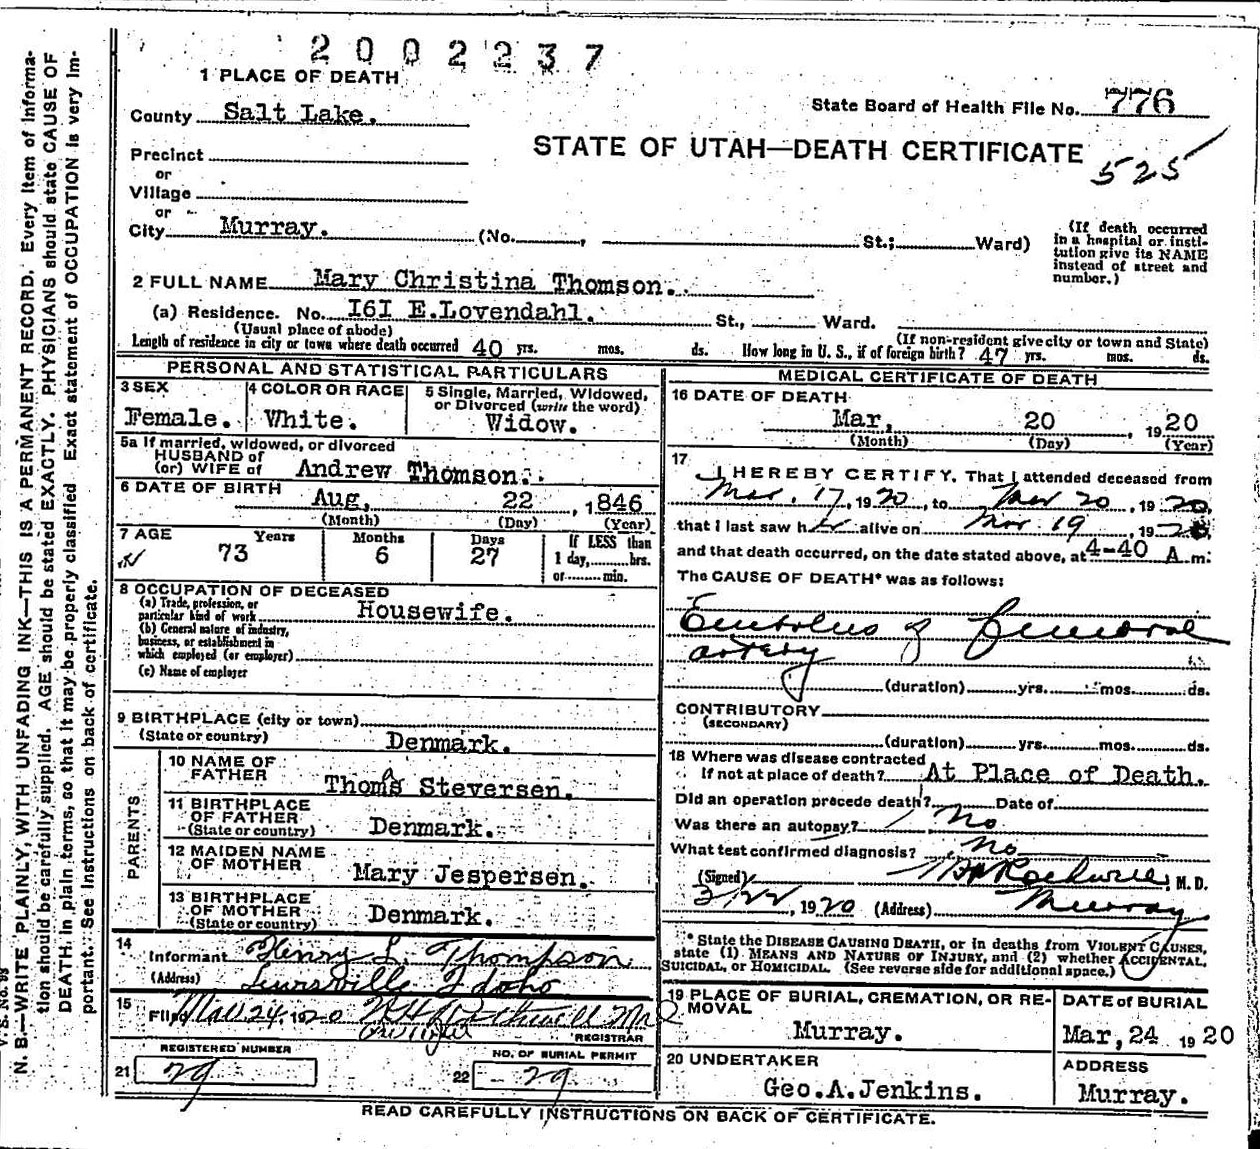 2002237
1 PLACE OF DEATH
County Salt Lake.
State Board of Health File No. 776
STATE OF UTAH—DEATH CERTIFICATE
525
Precinct
or
Village
or
City Murray. (No. , St.; Ward)
(If death occurred in a hospital or insti-
tution give its NAME
instead of street and
number.)
2 FULL NAME Mary Christina Thomson.
(a) Residence. No. I6I E.Lovendahl. St., Ward.
(Usual place of abode) (If non-resident give city or town and State)
Length of residence in city or town where death occurred 40 yrs. mos. ds. How long in U. S., if of foreign birth? 47 yrs. mos. ds.
PERSONAL AND STATISTICAL PARTICULARS
3 SEX
Female.
4 COLOR OR RACE
White.
5 Single, Married, Widowed,
or Divorced (write the word)
Widow.
5a If married, widowed, or divorced
HUSBAND of
(or) WIFE of Andrew Thomson.
6 DATE OF BIRTH
Aug, 22 , 1846
(Month) (Day) (Year)
7 AGE Years Months Days If LESS than
73 6 27 1 day, hrs.
or min.
8 OCCUPATION OF DECEASED
(a) Trade, profession, or
particular kind of work Housewife.
(b) General nature of industry,
business, or establishment in
which employed (or employer)
(c) Name of employer
9 BIRTHPLACE (city or town)
(State or country) Denmark.
PARENTS
10 NAME OF
FATHER Thoms Steversen.
11 BIRTHPLACE
OF FATHER
(State or country) Denmark.
12 MAIDEN NAME
OF MOTHER Mary Jespersen.
13 BIRTHPLACE
OF MOTHER
(State or country) Denmark.
14
Informant Henry L. Thompson
(Address) Lewisville Idaho
15
Filed Mar 24, 1920
REGISTRAR
REGISTERED NUMBER
21 29
NO. OF BURIAL PERMIT
22 29
MEDICAL CERTIFICATE OF DEATH
16 DATE OF DEATH
Mar, 20 , 1920
(Month) (Day) (Year)
17
I HEREBY CERTIFY, That I attended deceased from
Mar. 17, 1920, to Mar 20, 1920,
that I last saw her alive on Mar 19, 1920,
and that death occurred, on the date stated above, at 4-40 A m.
The CAUSE OF DEATH* was as follows:
Embolus of femoral
artery
(duration) yrs. mos. ds.
CONTRIBUTORY
(SECONDARY)
(duration) yrs. mos. ds.
18 Where was disease contracted
If not at place of death? At Place of Death.
Did an operation precede death? No Date of
Was there an autopsy? No
What test confirmed diagnosis?
(Signed) Rockwell, M. D.
3/22, 1920 (Address) Murray
* State the DISEASE CAUSING DEATH, or in deaths from VIOLENT CAUSES,
state (1) MEANS AND NATURE OF INJURY, and (2) whether ACCIDENTAL,
SUICIDAL, or HOMICIDAL. (See reverse side for additional space.)
19 PLACE OF BURIAL, CREMATION, OR RE-
MOVAL
Murray.
DATE of BURIAL
Mar, 24 1920
20 UNDERTAKER
Geo.A.Jenkins.
ADDRESS
Murray.
READ CAREFULLY INSTRUCTIONS ON BACK OF CERTIFICATE.
V. S. No. 98
N. B.—WRITE PLAINLY, WITH UNFADING INK—THIS IS A PERMANENT RECORD. Every item of informa-
tion should be carefully supplied. AGE should be stated EXACTLY. PHYSICIANS should state CAUSE OF
DEATH in plain terms, so that it may be properly classified. Exact statement of OCCUPATION is very im-
portant. See instructions on back of certificate.